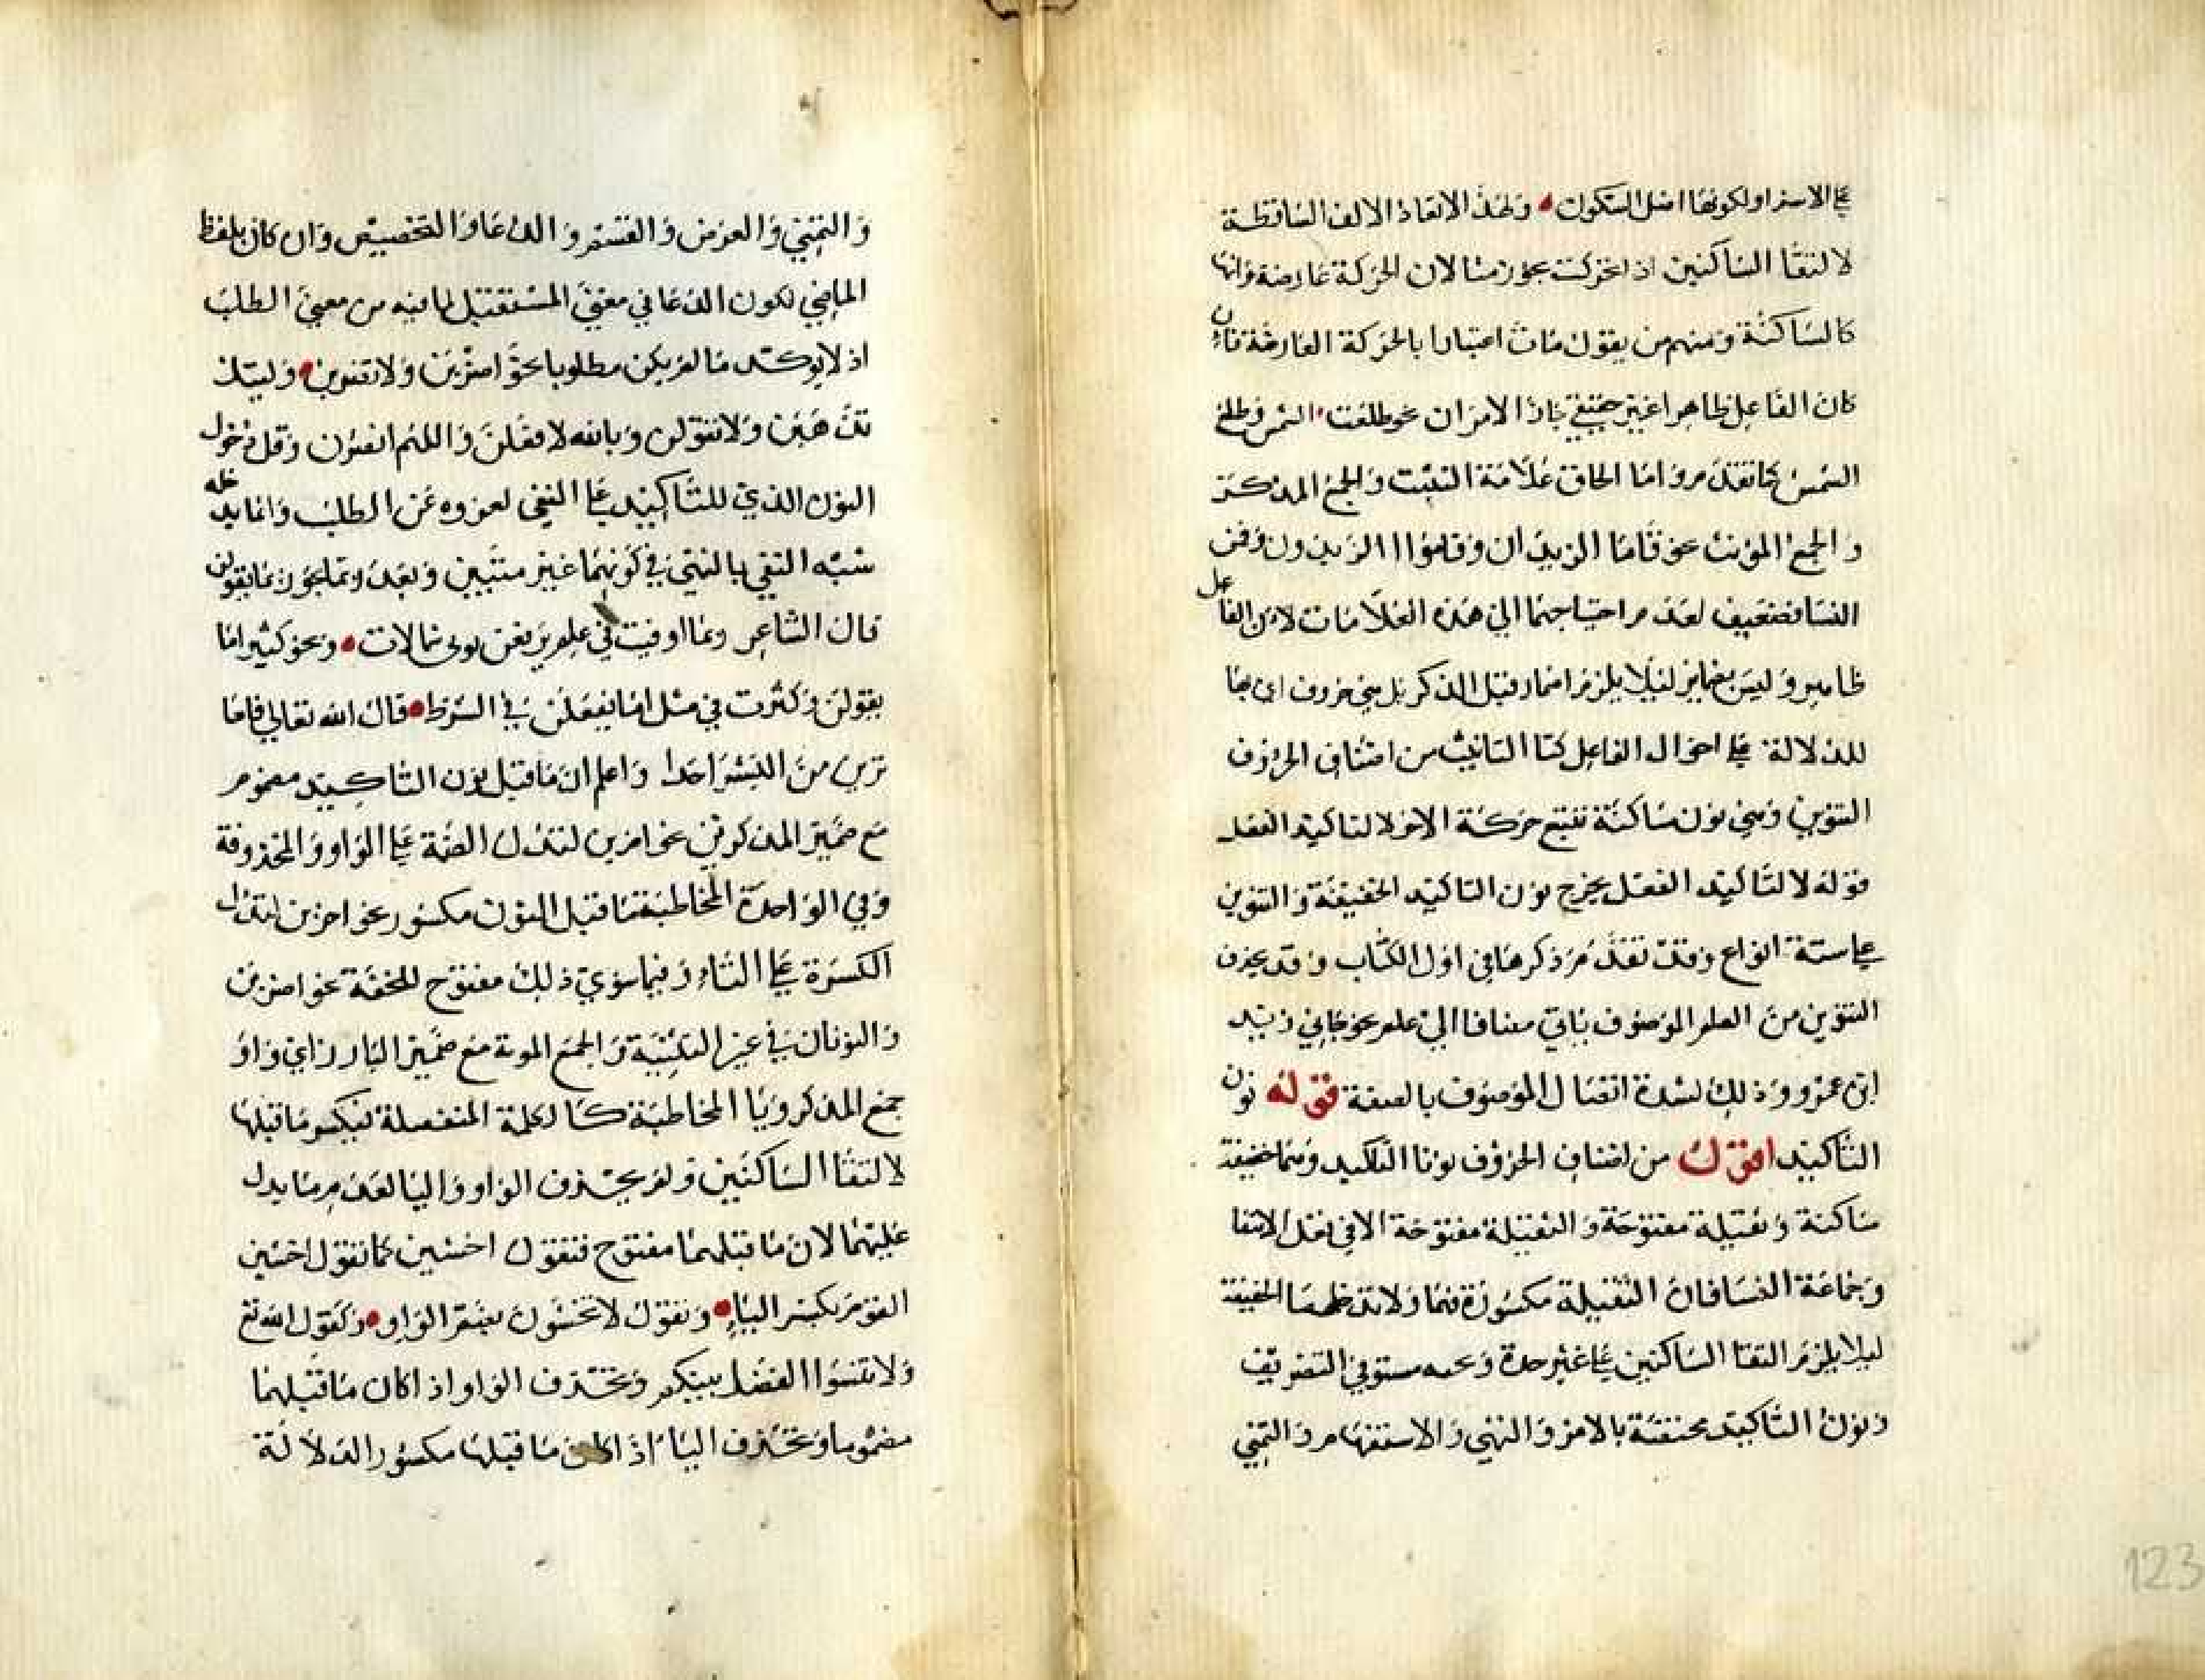 على الاسم او لكونها اصل السكون ولهذا لا تعاد الالف الساقطة
لالتقا الساكنين اذا تحركت نحو رمتا لان الحركة عارضة وانها
كالساكنة ومنهم من يقول مات اعتبارا بالحركة العارضة فان
كان الفاعل ظاهرا غير حقيقي جاز الامران نحو طلعت الشمس وطلع
الشمس كما تقدم واما الحاق علامة التثنية والجمع المذكر
والجمع المؤنث نحو قاما الزيدان وقاموا الزيدون وقمن
النسا فضعيف لعدم احتياجها الى هذه العلامات لان الفاعل
ظاهر وليس بضماير ليلا يلزم اضمار قبل الذكر بل هي حروف اتى بها
للدلالة على احوال الفاعل كتا التانيث من اصناف الحروف
التنوين وهي نون ساكنة تتبع حركة الاخر لا لتاكيد الفعل
قوله لا لتاكيد الفعل يخرج نون التاكيد الخفيفة والتنوين
على ستة انواع وقد تقدم ذكرها في اول الكتاب وقد يحذف
التنوين من العلم الموصوف بابن مضافا الى علم نحو جاني زيد
ابن عمرو وذلك لشدة اتصال الموصوف بالصفة قوله نون
التاكيد اقول من اصناف الحروف نونا التاكيد وهما خفيفة
ساكنة وثقيلة مفتوحة والثقيلة مفتوحة الا في فعل الاثنين
وجماعة النسا فان الثقيلة مكسورة فيهما ولا تدخلهما الخفيفة
ليلا يلزم التقا الساكنين على غير حدة مستوفي التصريف
ونون التاكيد مختصة بالامر والنهي والاستفهام والتمني
والتمني والعرض والقسم والدعا والتحضيض وان كان بلفظ
الماضي لكون الدعا في معنى المستقبل لما فيه من معنى الطلب
اذ لا يوكد ما لم يكن مطلوبا نحو اضربن ولا تقنين وليتك
هين ولا تقولن وبالله لافعلن واللهم انصرن وقل دخول
النون الذي للتاكيد على النفي لعروه عن الطلب وانما يدخله
شبه النفي بالنهي في كونهما غير مثبتين وبعد ربما نحو ربما يقولن
قال الشاعر ربما اوفيت في علم يرفعن ثوبي شمالات ونحو كثيرا ما
يقولن وكثرت في مثل اما يفعلن في الشرط قال الله تعالى فاما
ترين من البشر احدا واعلم ان ما قبل نون التاكيد مضموم
مع ضمير المذكرين نحو اضربن لتدل الضمة على الواو المحذوفة
وفي الواحدة المخاطبة ما قبل النون مكسور نحو اضربن لتدل
الكسرة على الياء وفيما سوى ذلك مفتوح للخفة نحو اضربن
والنونان في غير التثنية والجمع المونث مع ضمير البارز اي واو
جمع المذكر ويا المخاطبة كالكلمة المنفصلة فيكسر ما قبلها
لالتقا الساكنين ولم يحذف الواو واليا لعدم ما يدل
عليهما لان ما قبلهما مفتوح فتقول اخشين كما تقول اخشين
القوم بكسر الياء وتقول لا تخشون بضم الواو وكقول الله تع
ولا تنسوا الفضل بينكم وتحذف الواو اذا كان ما قبلهما
مضموما وتحذف اليا اذا كان ما قبلها مكسور الدلالة